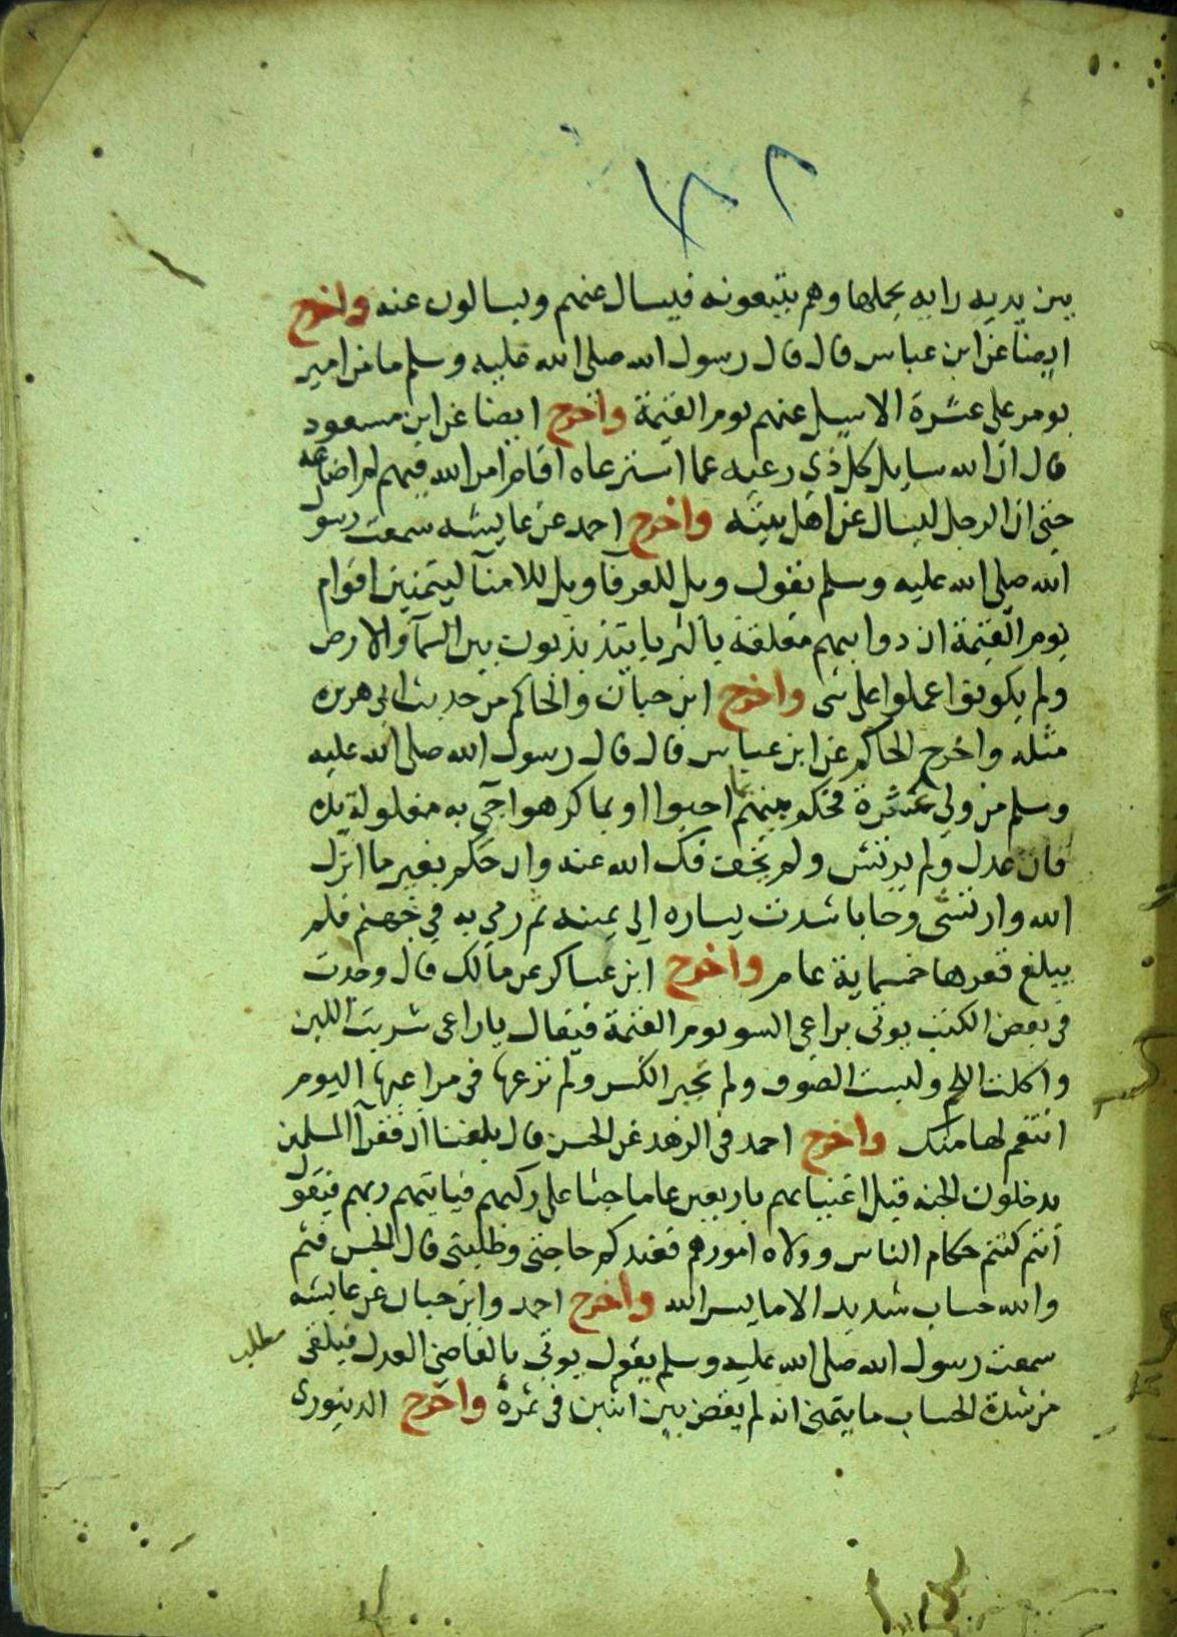 بين يديه رايه يحملها وهم يتبعونه فيسال عنهم ويسالون عنه واخرج
ايضا عن ابن عباس قال قال رسول الله صلى الله عليه وسلم ما من امير
يومر على عشرة الا سيل عنهم يوم القيمة واخرج ايضا عن ابن مسعود
قال ان الله سايل كل ذي رعيه عما استرعاه اقام امر الله فيهم ام اضاعه
حتى ان الرجل ليسال عن اهل بيته واخرج احمد عن عايشه سمعت رسول
الله صلى الله عليه وسلم يقول ويل للعرفآ ويل للامنآ ليتمنين اقوام
يوم القيمة ان دوابهم معلقة بالثريا يتذبذبون بين السمآ والارض
ولم يكونوا عملوا على شى واخرج ابن حبان والحاكم من حديث ابى هريره
مثله واخرج الحاكم عن ابن عباس قال قال رسول الله صلى الله عليه
وسلم من ولي عشرة فحكم بينهم بما احبوا او بما كرهوا جي به مغلولة يده
فان عدل ولم يرتش ولم يخف فك الله عنه وان حكم بغير ما انزل
الله وارتشى وحابا شدت يساره الي يمينه ثم رمي به في جهنم فلم
يبلغ قعرها خمسماية عام واخرج ابن عساكر عن مالك قال وجدت
في بعض الكتب يوتى براعي السو يوم القيمة فيقال ياراعى شربت اللبن
واكلت اللحم ولبست الصوف ولم تجبر الكسر ولم ترعها في مراعيها اليوم
انتقم لها منك واخرج احمد في الزهد عن الحسن قال بلغنا ان فقرآ المسلمين
يدخلون الجنه قبل اغنيايهم باربعين عاما جثا على ركبهم فياتيهم ربهم فيقول
انتم كنتم حكام الناس وولاه امورهم فعندكم حاجتى وطلبتى قال الحسن فثم
والله حساب شديد الا ما يسر الله واخرج احمد وابن حبان عن عايشه
سمعت رسول الله صلى الله عليه وسلم يقول يوتي بالقاضي العدل فيلقى
مطلب
من شدة الحساب ما يتمنى انه لم يقض بين اثنين في تمرة واخرج الدينورى